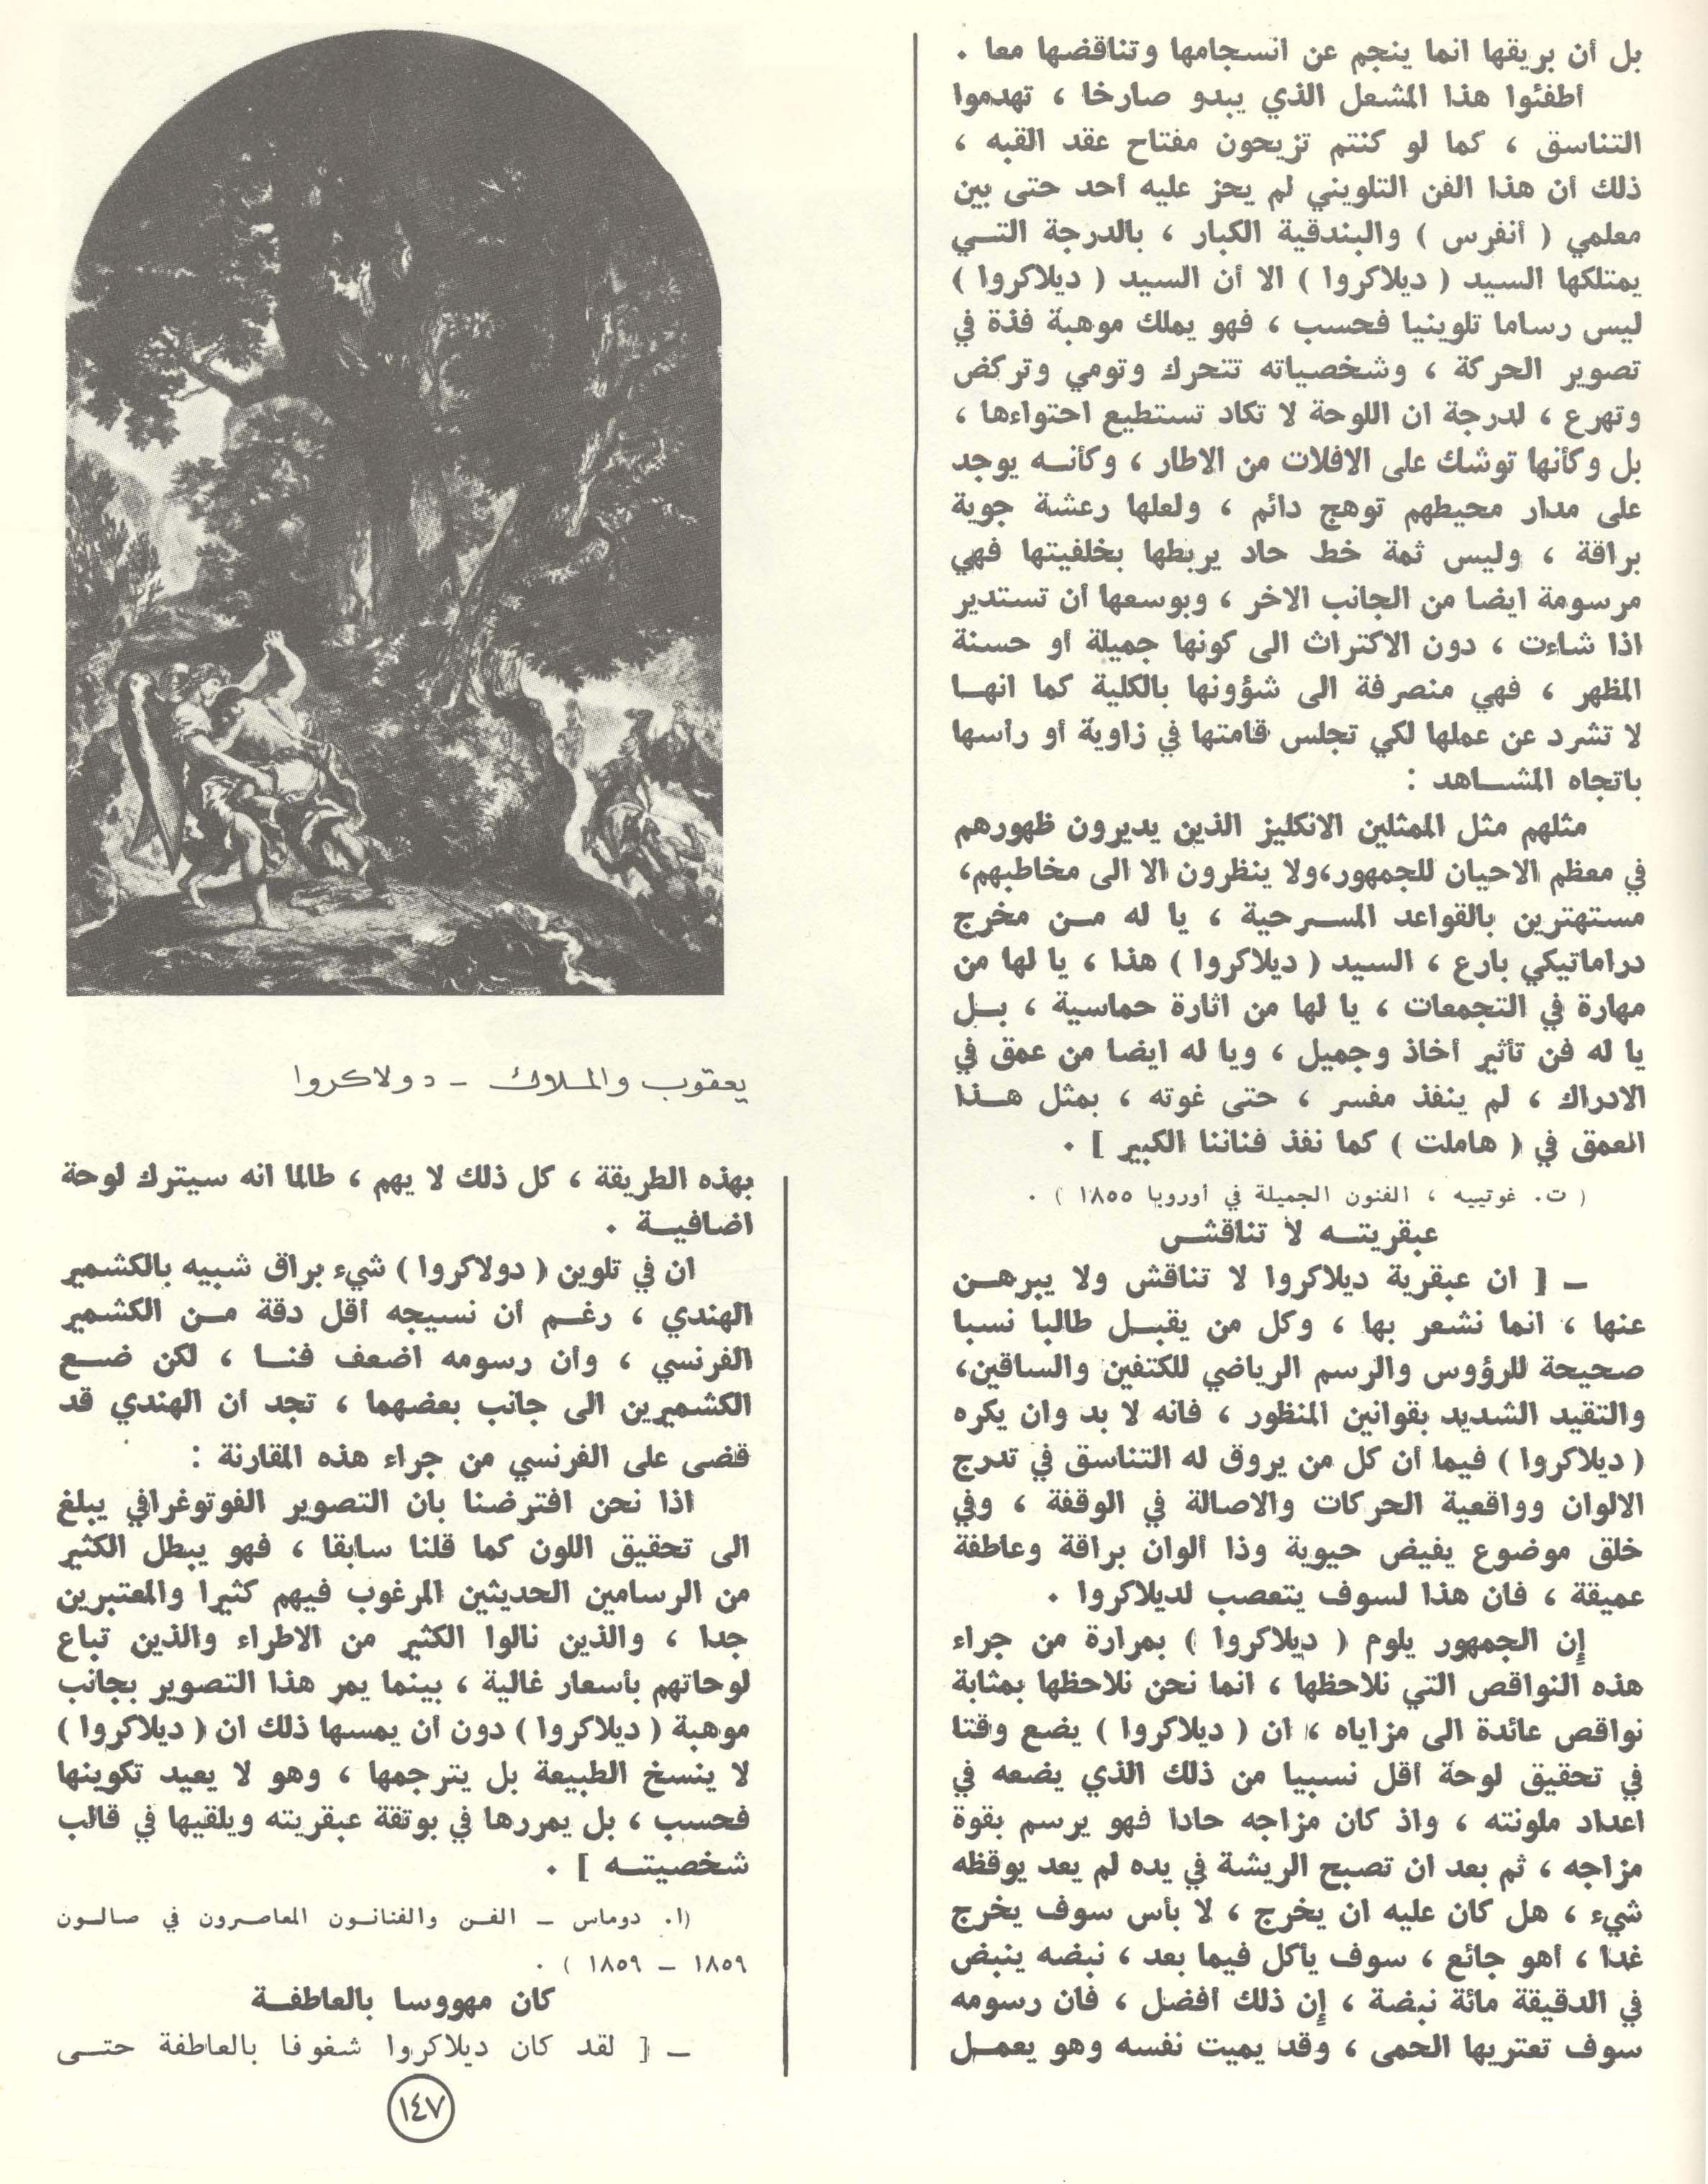 بل أن بريقها انما ينجم عن انسجامها وتناقضها معا .
أطفئوا هذا المشعل الذي يبدو صارخا ، تهدموا
التناسق ، كما لو كنتم تزيحون مفتاح عقد القبه ،
ذلك أن هذا الفن التلويني لم يحز عليه أحد حتى بين
معلمي ( أنفرس ) والبندقية الكبار ، بالدرجة التـي
يمتلكها السيد ( ديلاكروا ) الا أن السيد ( ديلاكروا )
ليس رساما تلوينيا فحسب ، فهو يملك موهبة فذة في
تصوير الحركة ، وشخصياته تتحرك وتومي وتركض
وتهرع ، لدرجة ان اللوحة لا تكاد تستطيع احتواءها ،
بل وكأنها توشك على الافلات من الاطار ، وكأنـه يوجد
على مدار محيطهم توهج دائم ، ولعلها رعشة جوية
براقة ، وليس ثمة خط حاد يربطها بخلفيتها فهي
مرسومة ايضا من الجانب الاخر ، وبوسعها أن تستدير
اذا شاءت ، دون الاكتراث الى كونها جميلة أو حسنة
المظهر ، فهي منصرفة الى شؤونها بالكلية كما انهـا
لا تشرد عن عملها لكي تجلس قامتها في زاوية أو رأسها
باتجاه المشـاهد :
مثلهم مثل الممثلين الانكليز الذين يديرون ظهورهم
في معظم الاحيان للجمهور،ولا ينظرون الا الى مخاطبهم،
مستهترين بالقواعد المسـرحية ، يا له مـن مخرج
دراماتيكي بارع ، السيد ( ديلاكروا ) هذا ، يا لها من
مهارة في التجمعات ، يا لها من اثارة حماسية ، بـل
يا له فن تأثير أخاذ وجميل ، ويا له ايضا من عمق في
الادراك ، لم ينفذ مفسر ، حتى غوته ، بمثل هـذا
العمق في ( هاملت ) كما نفذ فناننا الكبير ] .
( ت. غوتييه ، الفنون الجميلة في أوروبا ١٨٥٥ ) .
عبقريتـه لا تناقش
ـ [ ان عبقرية ديلاكروا لا تناقش ولا يبرهـن
عنها ، انما نشعر بها ، وكل من يقبـل طالبا نسبا
صحيحة للرؤوس والرسم الرياضي للكتفين والساقين،
والتقيد الشديد بقوانين المنظور ، فانه لا بد وان يكره
( ديلاكروا ) فيما أن كل من يروق له التناسق في تدرج
الالوان وواقعية الحركات والاصالة في الوقفة ، وفي
خلق موضوع يفيض حيوية وذا ألوان براقة وعاطفة
عميقة ، فان هذا لسوف يتعصب لديلاكروا .
إن الجمهور يلوم ( ديلاكروا ) بمرارة من جراء
هذه النواقص التي نلاحظها ، انما نحن نلاحظها بمثابة
نواقص عائدة الى مزاياه ، ان ( ديلاكروا ) يضع وقتا
في تحقيق لوحة أقل نسبيا من ذلك الذي يضعه في
اعداد ملونته ، واذ كان مزاجه حادا فهو يرسم بقوة
مزاجه ، ثم بعد ان تصبح الريشة في يده لم يعد يوقظه
شيء ، هل كان عليه ان يخرج ، لا بأس سوف يخرج
غدا ، أهو جائع ، سوف يأكل فيما بعد ، نبضه ينبض
في الدقيقة مائة نبضة ، إن ذلك أفضل ، فان رسومه
سوف تعتريها الحمى ، وقد يميت نفسه وهو يعمـل
يعقوب والملاك ـ دولاكروا
بهذه الطريقة ، كل ذلك لا يهم ، طالما انه سيترك لوحة
اضافيـة .
ان في تلوين ( دولاكروا ) شيء براق شبيه بالكشمير
الهندي ، رغـم أن نسيجه أقل دقة مـن الكشمير
الفرنسي ، وأن رسومه اضعف فنـا ، لكن ضـع
الكشميرين الى جانب بعضهما ، تجد أن الهندي قد
قضى على الفرنسي من جراء هذه المقارنة :
اذا نحن افترضنا بان التصوير الفوتوغرافي يبلغ
الى تحقيق اللون كما قلنا سابقا ، فهو يبطل الكثير
من الرسامين الحديثين المرغوب فيهم كثيرا والمعتبرين
جدا ، والذين نالوا الكثير من الاطراء والذين تباع
لوحاتهم بأسعار غالية ، بينما يمر هذا التصوير بجانب
موهبة ( ديلاكروا ) دون أن يمسها ذلك ان ( ديلاكروا )
لا ينسخ الطبيعة بل يترجمها ، وهو لا يعيد تكوينها
فحسب ، بل يمررها في بوتقة عبقريته ويلقيها في قالب
شخصيتـه ] .
(ا. دوماس ـ الفـن والفنانـون المعاصـرون في صالـون
١٨٥٩ ـ ١٨٥٩ ) .
كان مهووسا بالعاطفـة
ـ [ لقد كان ديلاكروا شغوفا بالعاطفة حتـى
١٤٧